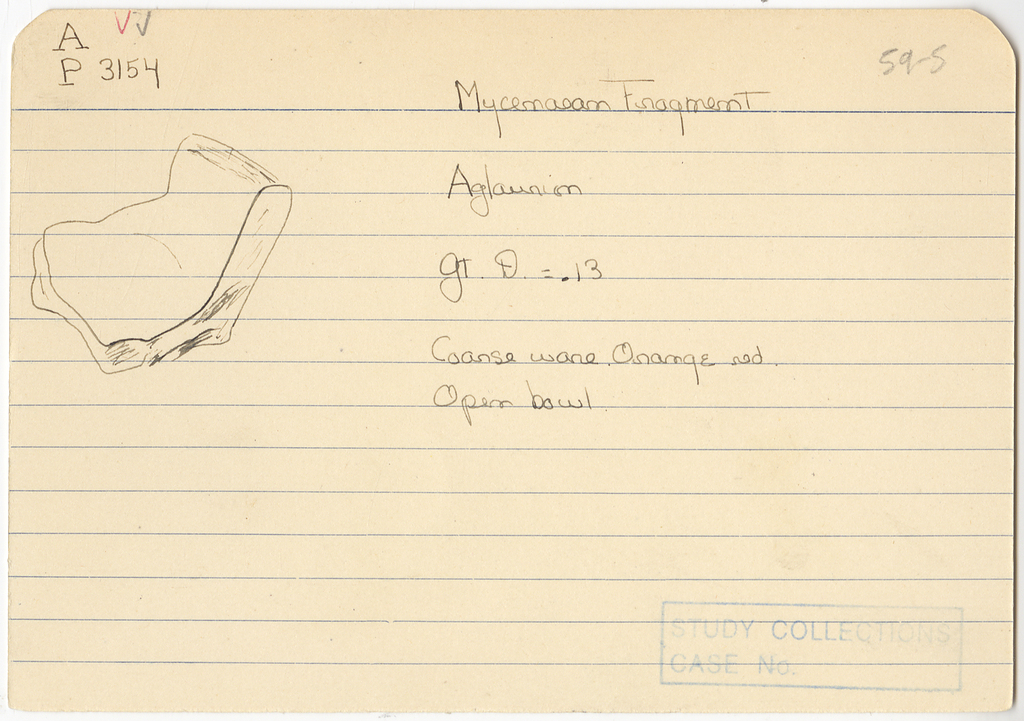 A
P 3154
59-5
Mycenaean Fragment
Aglaurion
gt. D. = .13
Coarse ware. Orange red.
Open bowl
STUDY COLLECTIONS
CASE No.